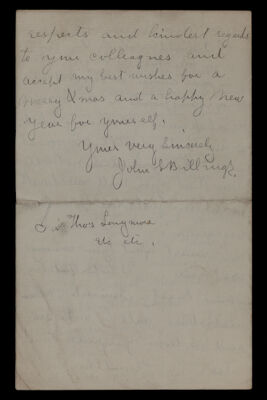 respects and kindest regards
to your colleagues and
accept my best wishes for a
merry Xmas and a happy New
Year for yourself.
Yours very sincerely
John S Billings.
Sir Thos Longmore
etc etc.